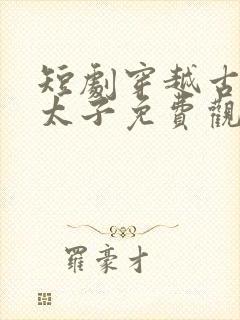 短劇穿越古
太子免費觀
羅豪才